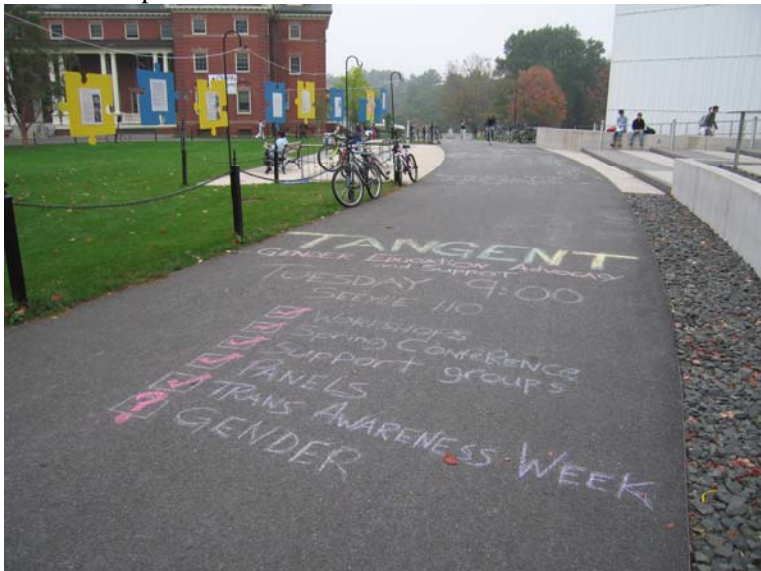 TANGENT
GENDER EDUCATION ADVOCACY
and SUPPORT
TUESDAY 9:00
SEELYE 110
WORKSHOPS
Spring Conference
Support groups
PANELS
TRANS AWARENESS WEEK
? GENDER